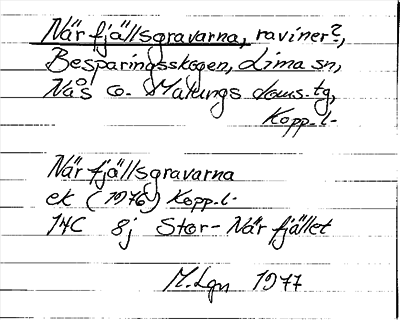 När fjällsgravarna, raviner?,
Besparingsskogen, Lima sn,
Nås o. Malungs doms. tg,
Kopp. l.
När fjällsgravarna
ek (1976) Kopp. l.
14C 8j Stor-När fjället
M. Lgn 1977